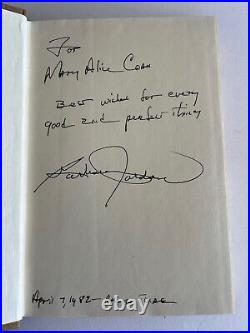 For
Mary Alice
Best wishes for every
good and perfect thing
Barbara Jordan
April 7, 1982 -